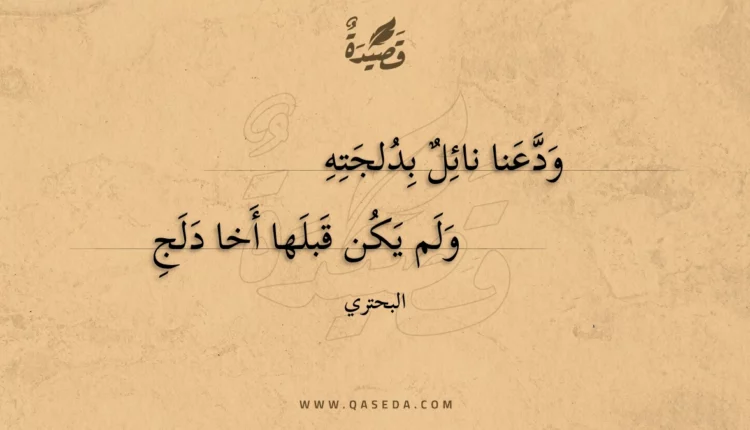 قَصِيْدَةٌ
وَدَّعَنا نائِلٌ بِدُلجَتِهِ
وَلَم يَكُن قَبلَها أَخا دَلَجِ
البحتري
WWW.QASEDA.COM